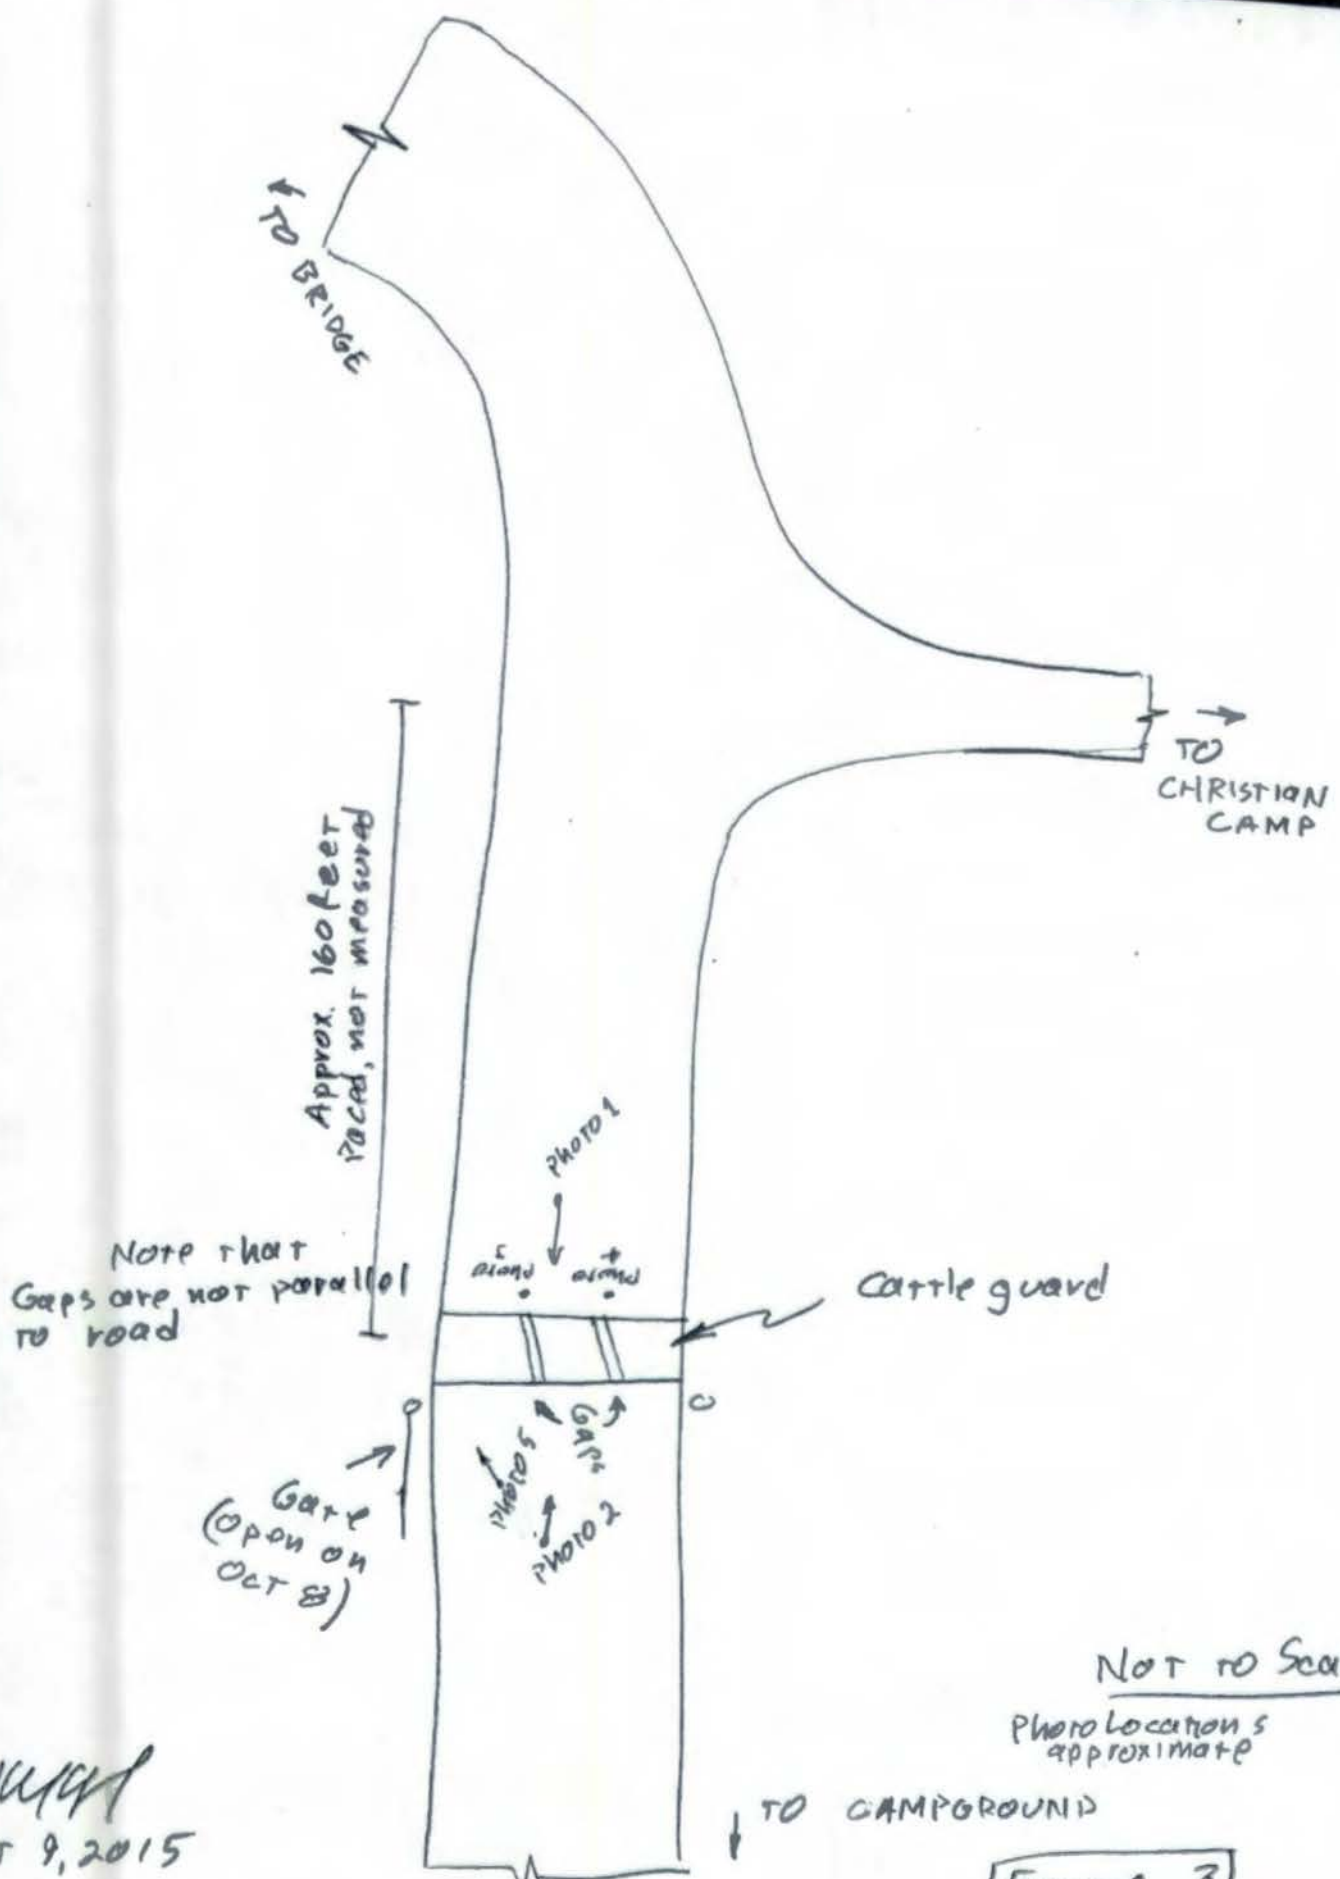 TO BRIDGE
TO
CHRISTIAN
CAMP
Approx. 160 feet
Paced, not measured
PHOTO 1
Note that
Gaps are not parallel
to road
Photo 3
Photo 4
Cattle guard
Gate
(open on
Oct 8)
PHOTO 5
Gaps
PHOTO 2
NOT TO Sca
Photo Locations
approximate
TO CAMPGROUND
9, 2015